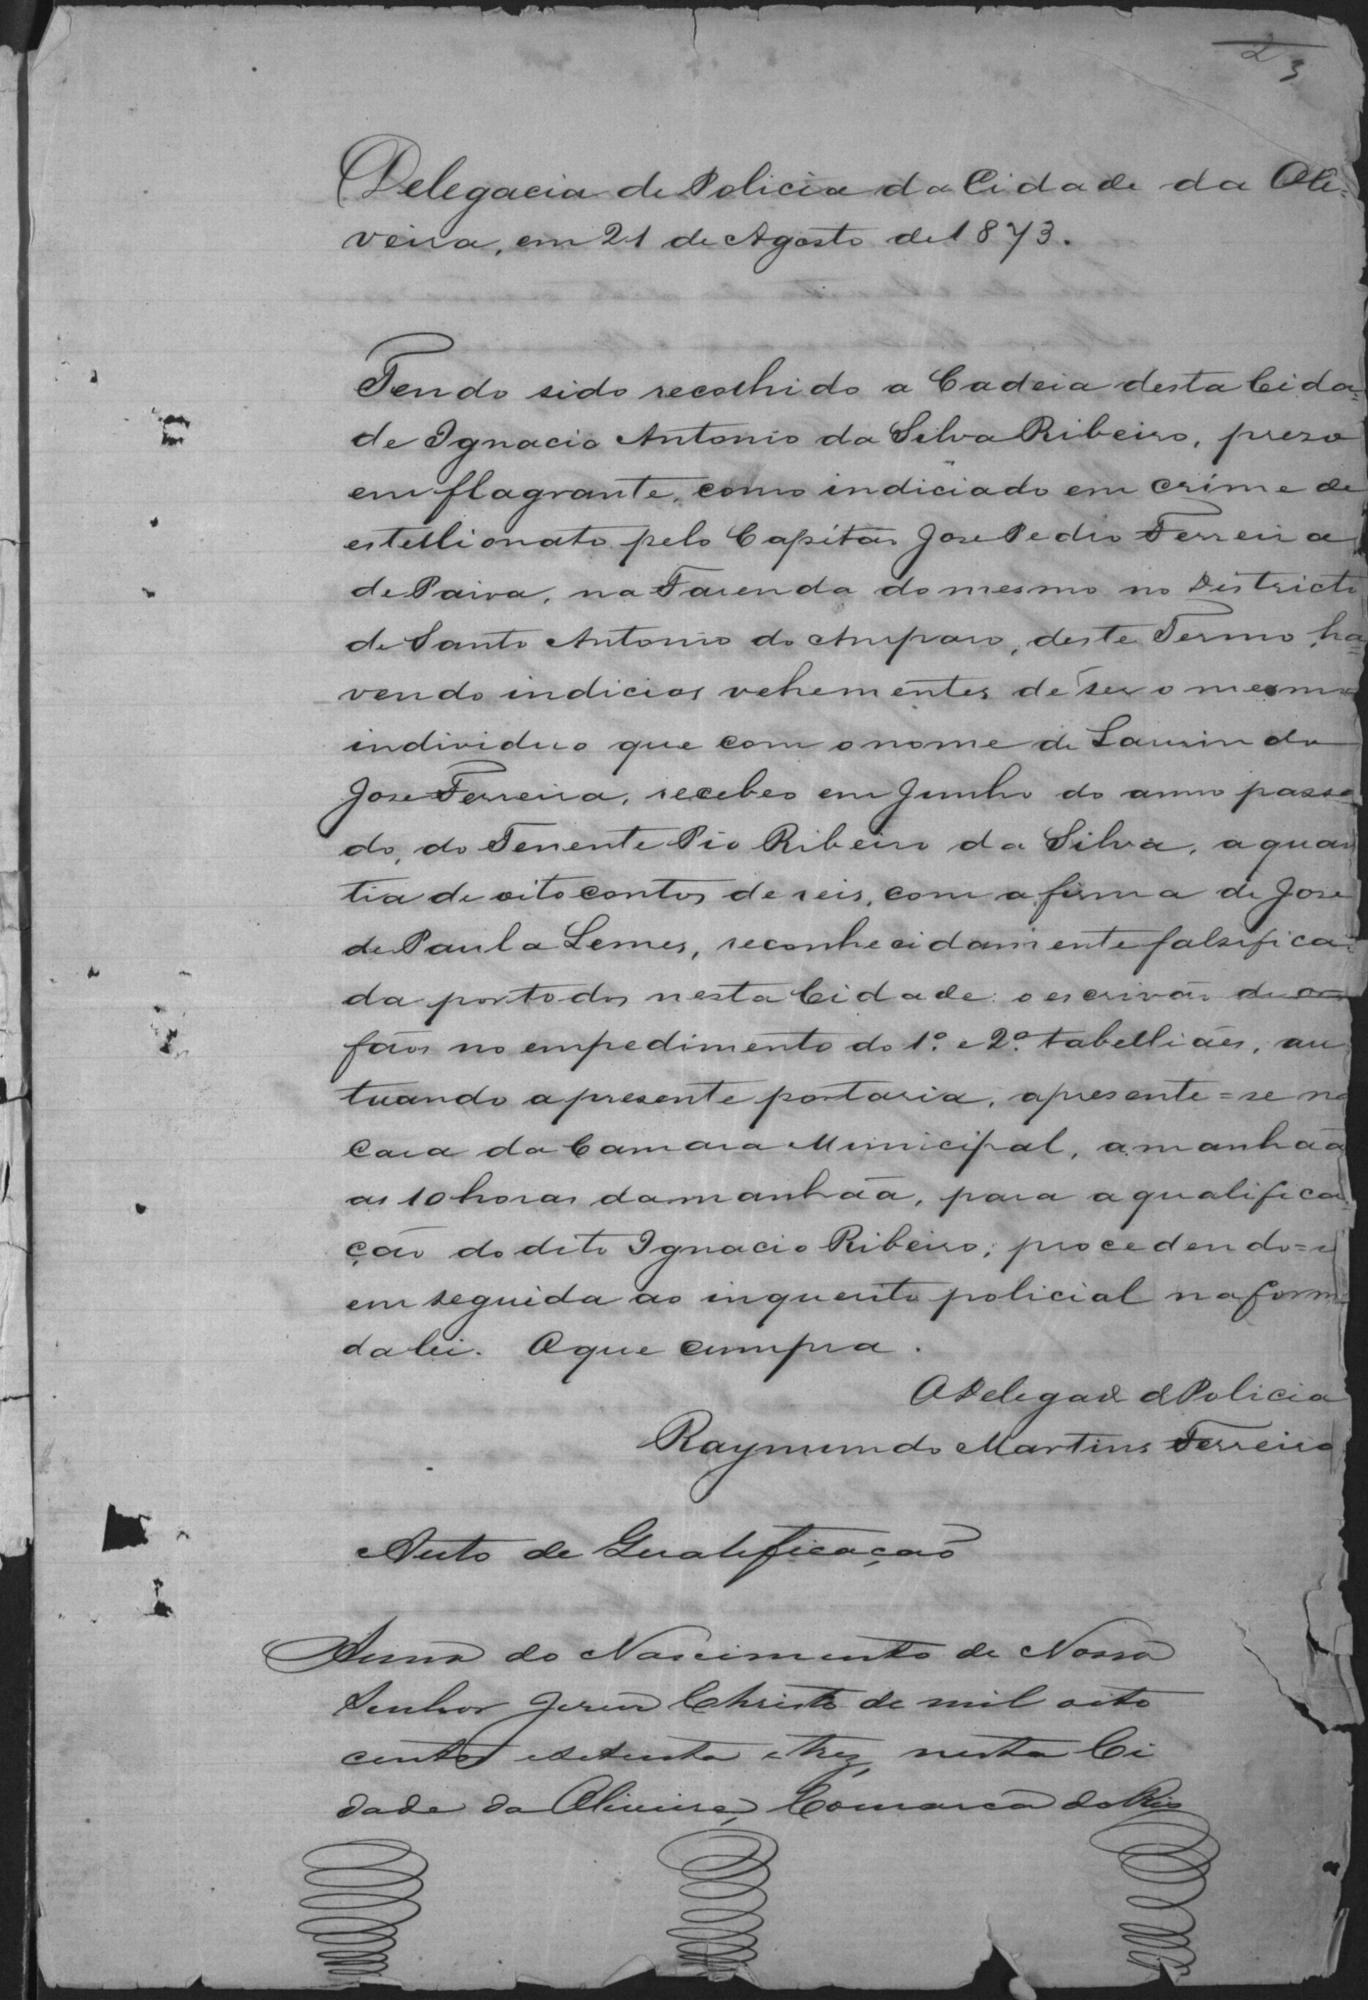 2 3
Delegacia de Policia da Cidade da Oli=
veira, em 21 de Agosto de 1873.
Tendo sido recolhido a Cadeia desta Cida=
de Ignacio Antonio da Silva Ribeiro, prezo
em flagrante, como indiciado em crime de
estellionato pelo Capitão Jose Pedro Ferreira
de Paiva, na Fazenda do mesmo no Districto
de Santo Antonio do Amparo, deste Termo, ha=
vendo indicios vehementes de ser o mesmo
individuo que com o nome de Laurindo
Jose Ferreira, recebeo em Junho do anno passa
do, do Tenente Pio Ribeiro da Silva, a quan
tia de oito contos de reis, com a firma de Jose
de Paula Lemes, reconhecidamente falsifica=
da por todos nesta Cidade: o escrivão de or
fãos no empedimento do 1º e 2º tabelliães, au
tuando a presente portaria, apresente=se na
Casa da Camara Municipal, amanhãa
as 10 horas da manhãa, para a qualifica
ção do dito Ignacio Ribeiro; procedendo=se
em seguida ao inquerito policial na forma
da lei. O que cumpra.
O Delegado de Policia
Raymundo Martins Ferreira
Auto de Qualificação
Anno do Nascimento de Nosso
Senhor Jesus Christo de mil oito
centos e setenta e trez, nesta Ci
dade da Oliveira, Comarca do Rio